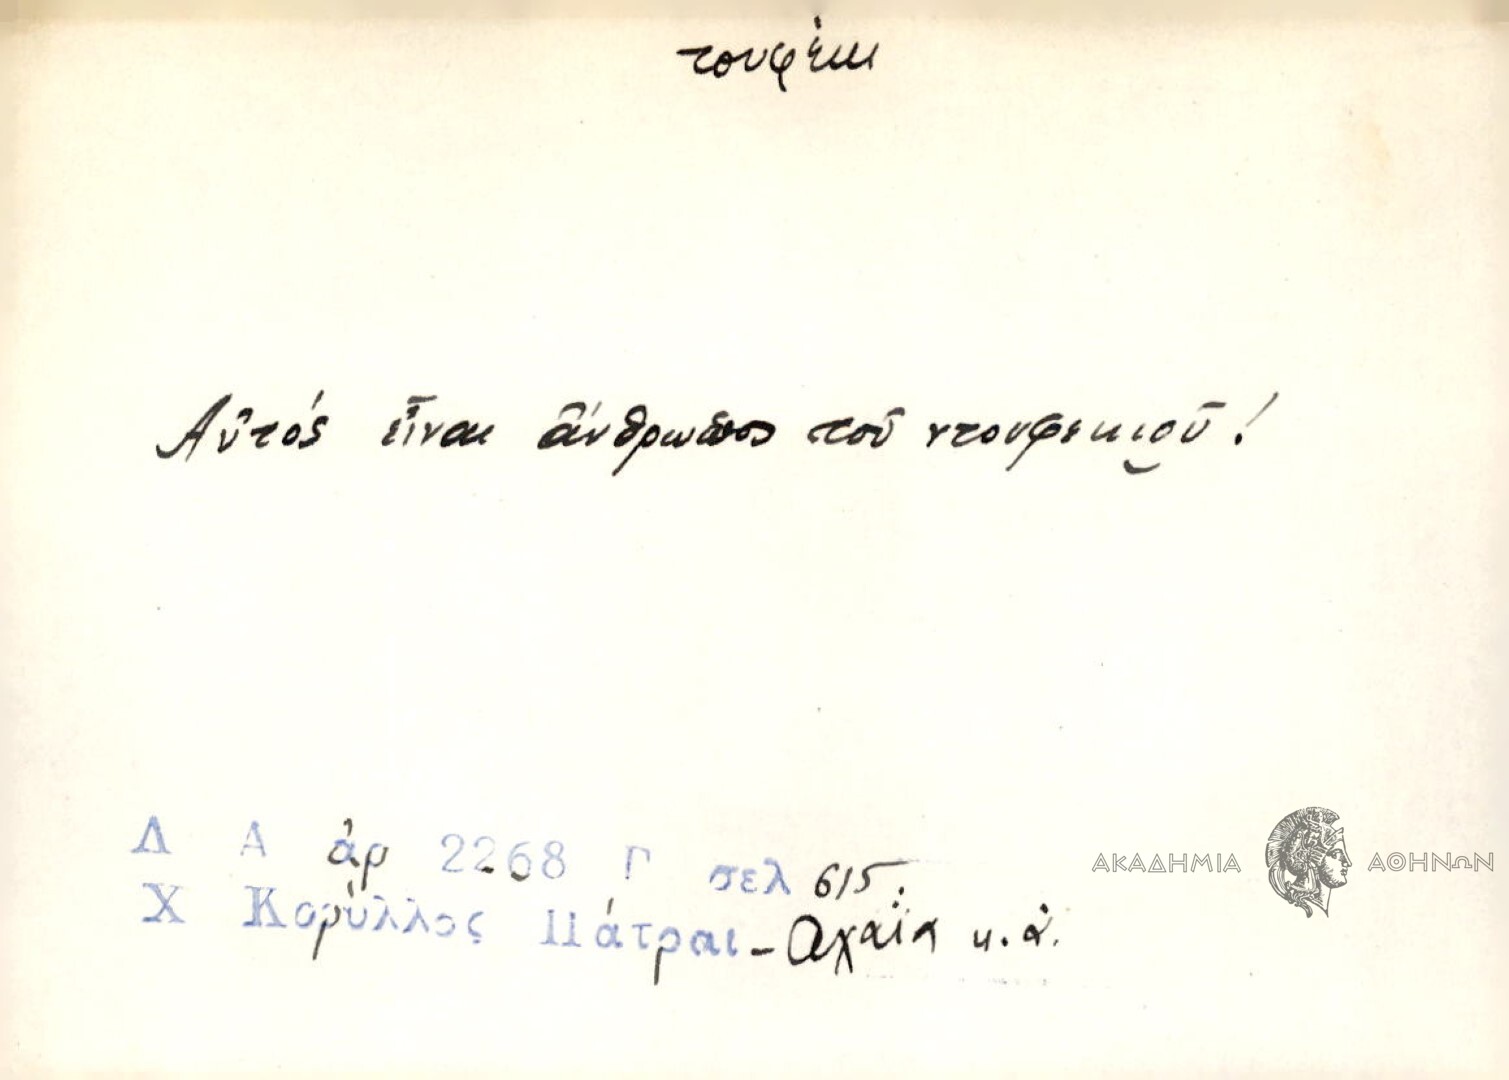 τουφέκι
Αὐτός εἶναι ἄνθρωπος τοῦ ντουφεκιοῦ!
Λ Α ἀρ 2268 Γ σελ 615.
Χ Κορύλλος Πάτραι - Ἀχαΐα κ.ἀ.
ΑΚΑΔΗΜΙΑ ΑΘΗΝΩΝ